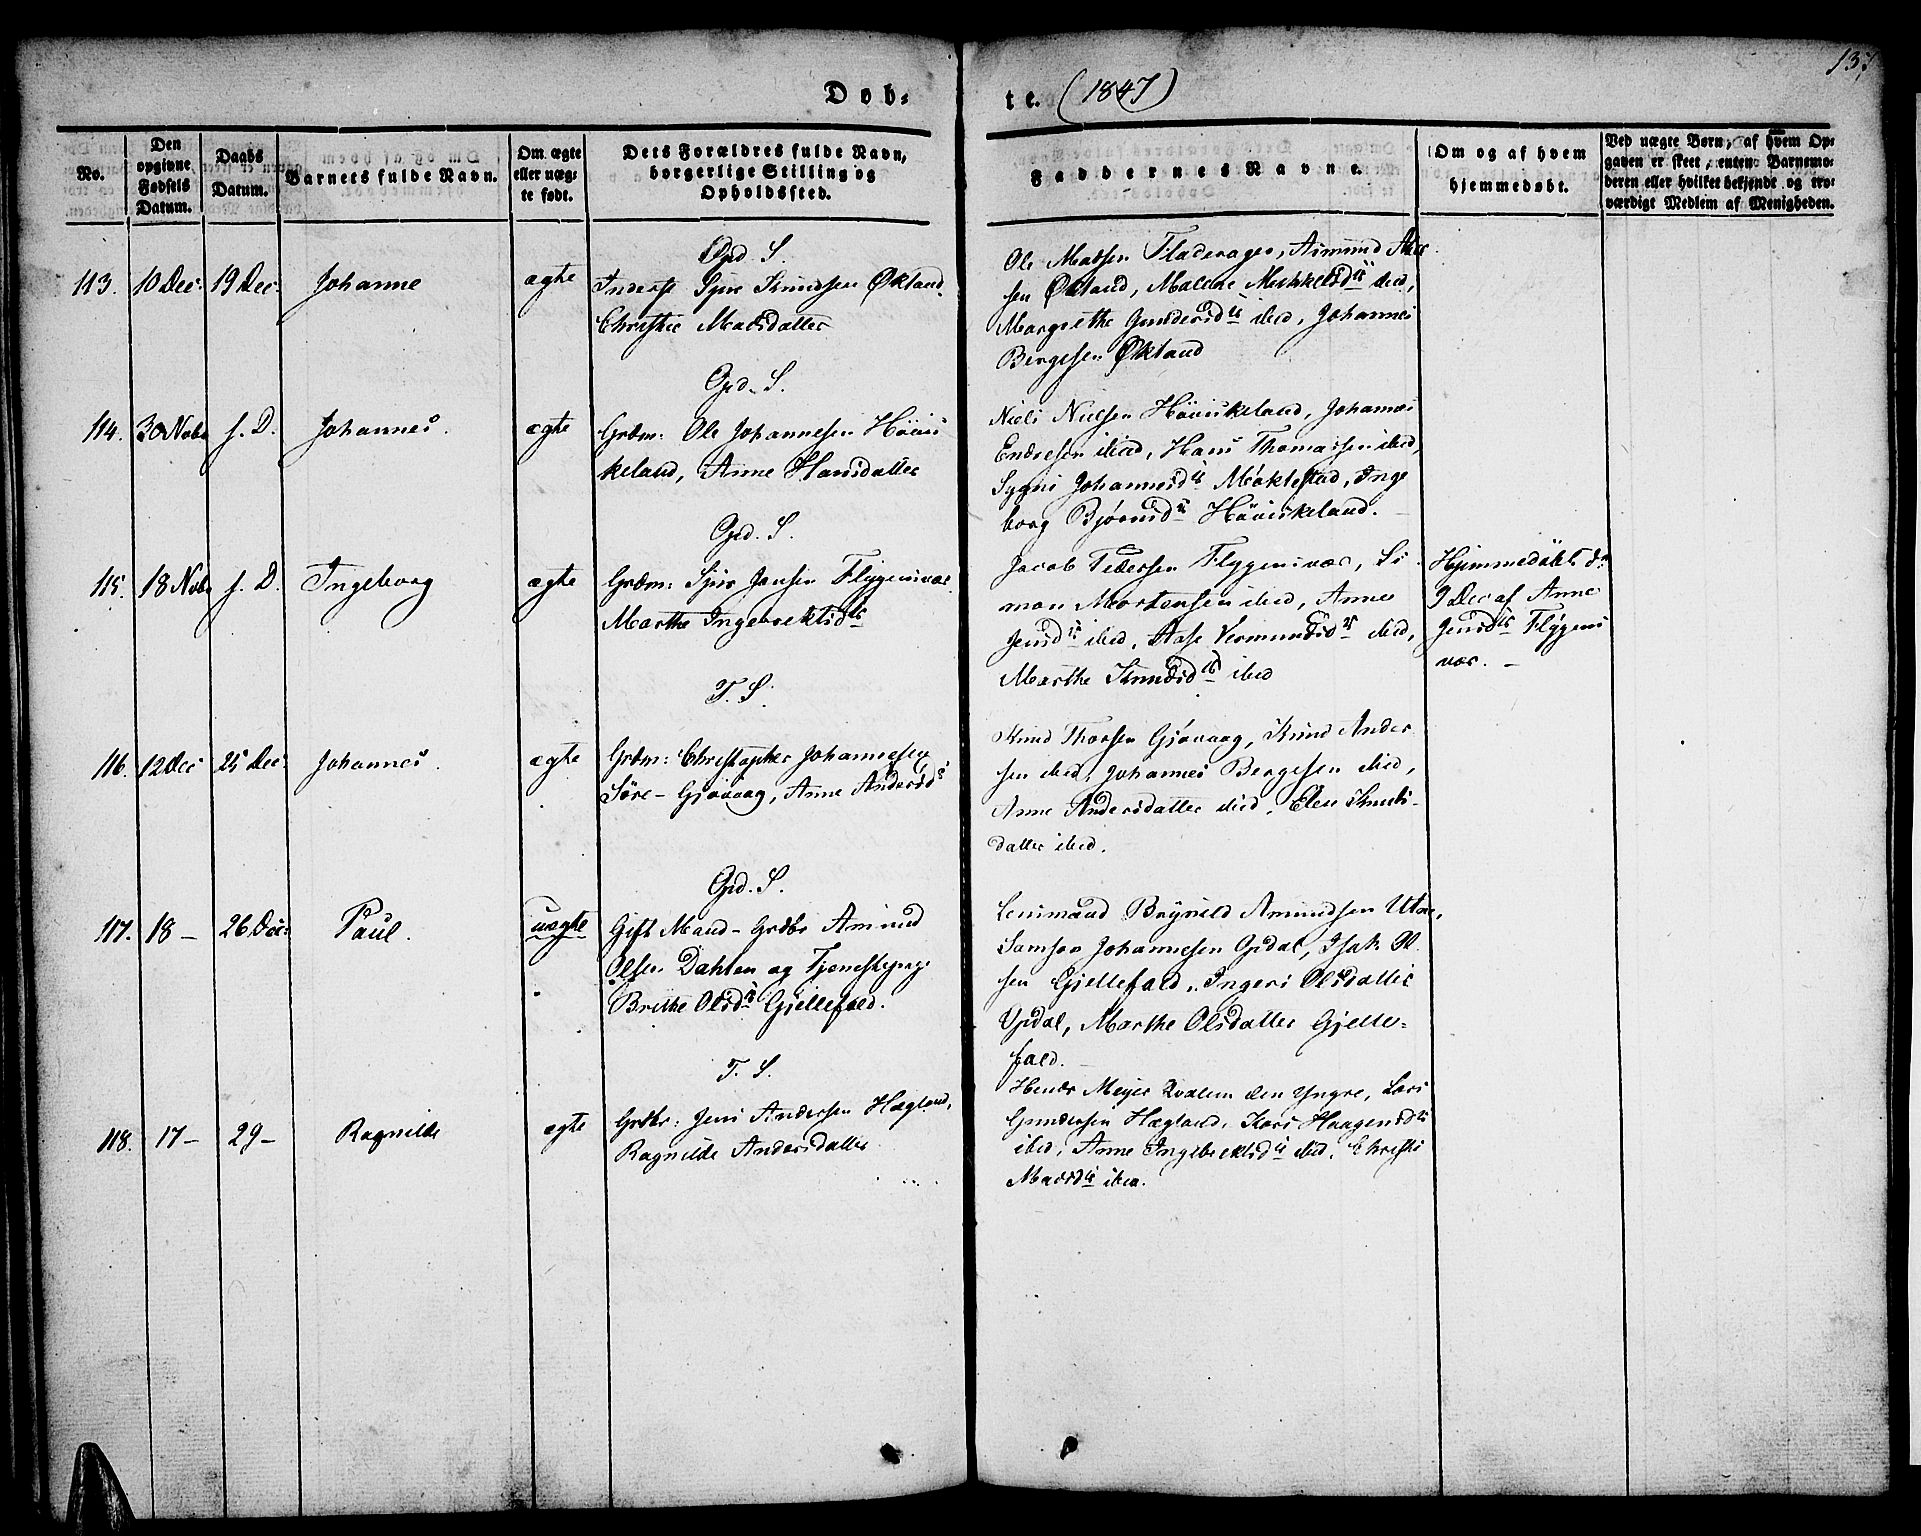 137
Døb-
te. (1847)
No.
Den opgivne Fødsels Datum.
Daabs Datum.
Barnets fulde Navn.
Om ægte eller uægte født.
Dets Forældres fulde Navn, borgerlige Stilling og Opholdssted.
Faddernes Navne.
Om og af hvem hjemmedøbt.
Ved uægte Børn, af hvem Opgaven er skeet, enten Barnemoderen eller hvilket bekjendt og troværdigt Medlem af Menigheden.
Opd. S.
113. 10 Dec. 19 Dec. Johanne ægte
Sjur Knudsen Økland
Christie Madsdatter
Ole Matsen Fladerager, Asmund
sen Økland, Malene Michkelsdtr ibid,
Margrethe Gundersdtr ibid, Johannes
Bergesen Økland
Opd. S.
114. 30 Novbr f. D. Johannes. ægte
Grdm: Ole Johannesen Høvis
keland, Anne Hansdatter
Niels Nielsen Høviskeland, Johannes
Endresen ibid, Hans Thomassen ibid,
Sygni Johannesdtr Møklestad, Inge
borg Bjørnsdtr Høviskeland.
Opd. S.
115. 18 Novbr f. D. Ingeborg ægte
Grdm: Sjur Jensen Flygensvær
Marthe Ingebrektsdtr
Jacob Pedersen Flygensvær, Si
mon Mortensen ibid, Anne
Jensdtr ibid, Aase Vermundsdtr ibid,
Marthe Knudsdtr ibid
Hjemmedøbt d.
9 Dec af Anne
Jensdtr Flygens
vær. -
T. S.
116. 12 Dec 25 Dec. Johannes. ægte
Grdm: Christopher Johannesen
Søre-Gjøvaag, Anne Andersdtr
Knud Thorsen Gjøvaag, Knud Ander
sen ibid, Johannes Bergesen ibid,
Anne Andersdatter ibid, Elen Knuds-
datter ibid.
Opd. S.
117. 18 - 26 Dec. Paul. uægte
Gift Mand - Grdbr Amund
Olsen Dahlen og Tjenestepige
Brithe Olsdtr Gjellefald.
Lensmand Brynild Amundsen Utne,
Samson Johannesen Opdal, Isak Ol
sen Gjellefald, Ingeri Olsdatter
Opdal, Marthe Olsdatter Gjelle-
fald.
T. S.
118. 17 - 29 - Ragnilde ægte
Grdbr: Jens Andersen Hægland,
Ragnilde Andersdatter
Meyer den Yngre, Lars
Gundersen Hægland, Kari Haagensdtr
ibid, Anne Ingebrektsdtr ibid, Christi
Madsdtr ibid.